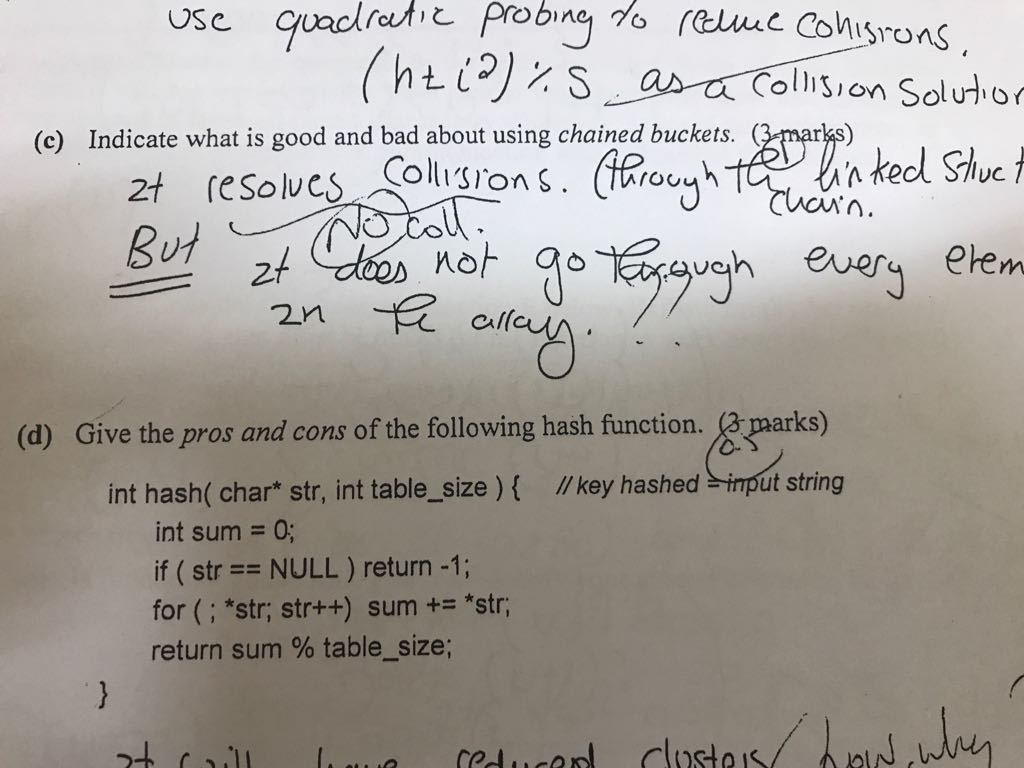 use quadratic probing to reduce collisions.
(h ± i²) % S as a collision solution
(c) Indicate what is good and bad about using chained buckets. (3 marks)
It resolves collisions. (through the linked struct
chain.
No coll.
But It does not go through every elem
In the array. !!
(d) Give the pros and cons of the following hash function. (3 marks)
0.5
int hash( char* str, int table_size ) { // key hashed = input string
int sum = 0;
if ( str == NULL ) return -1;
for ( ; *str; str++) sum += *str;
return sum % table_size;
}
It will have reduced clusters / how, why